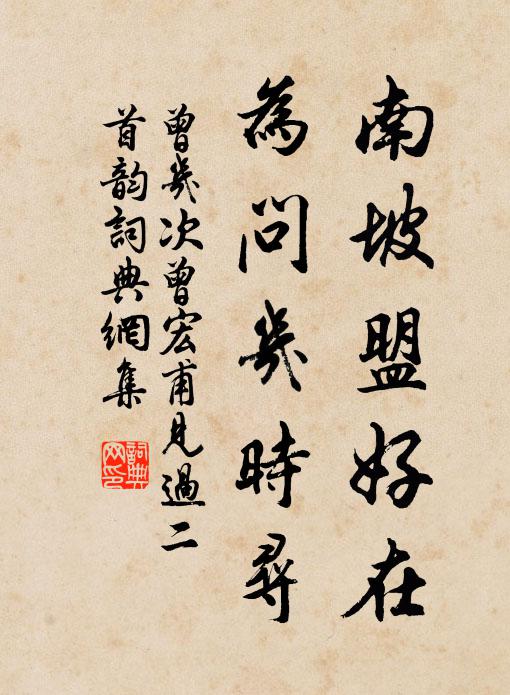 南坡盟好在
為問幾時尋
曾幾次曾宏甫見過二
首韵詞典網集
詞典
网印